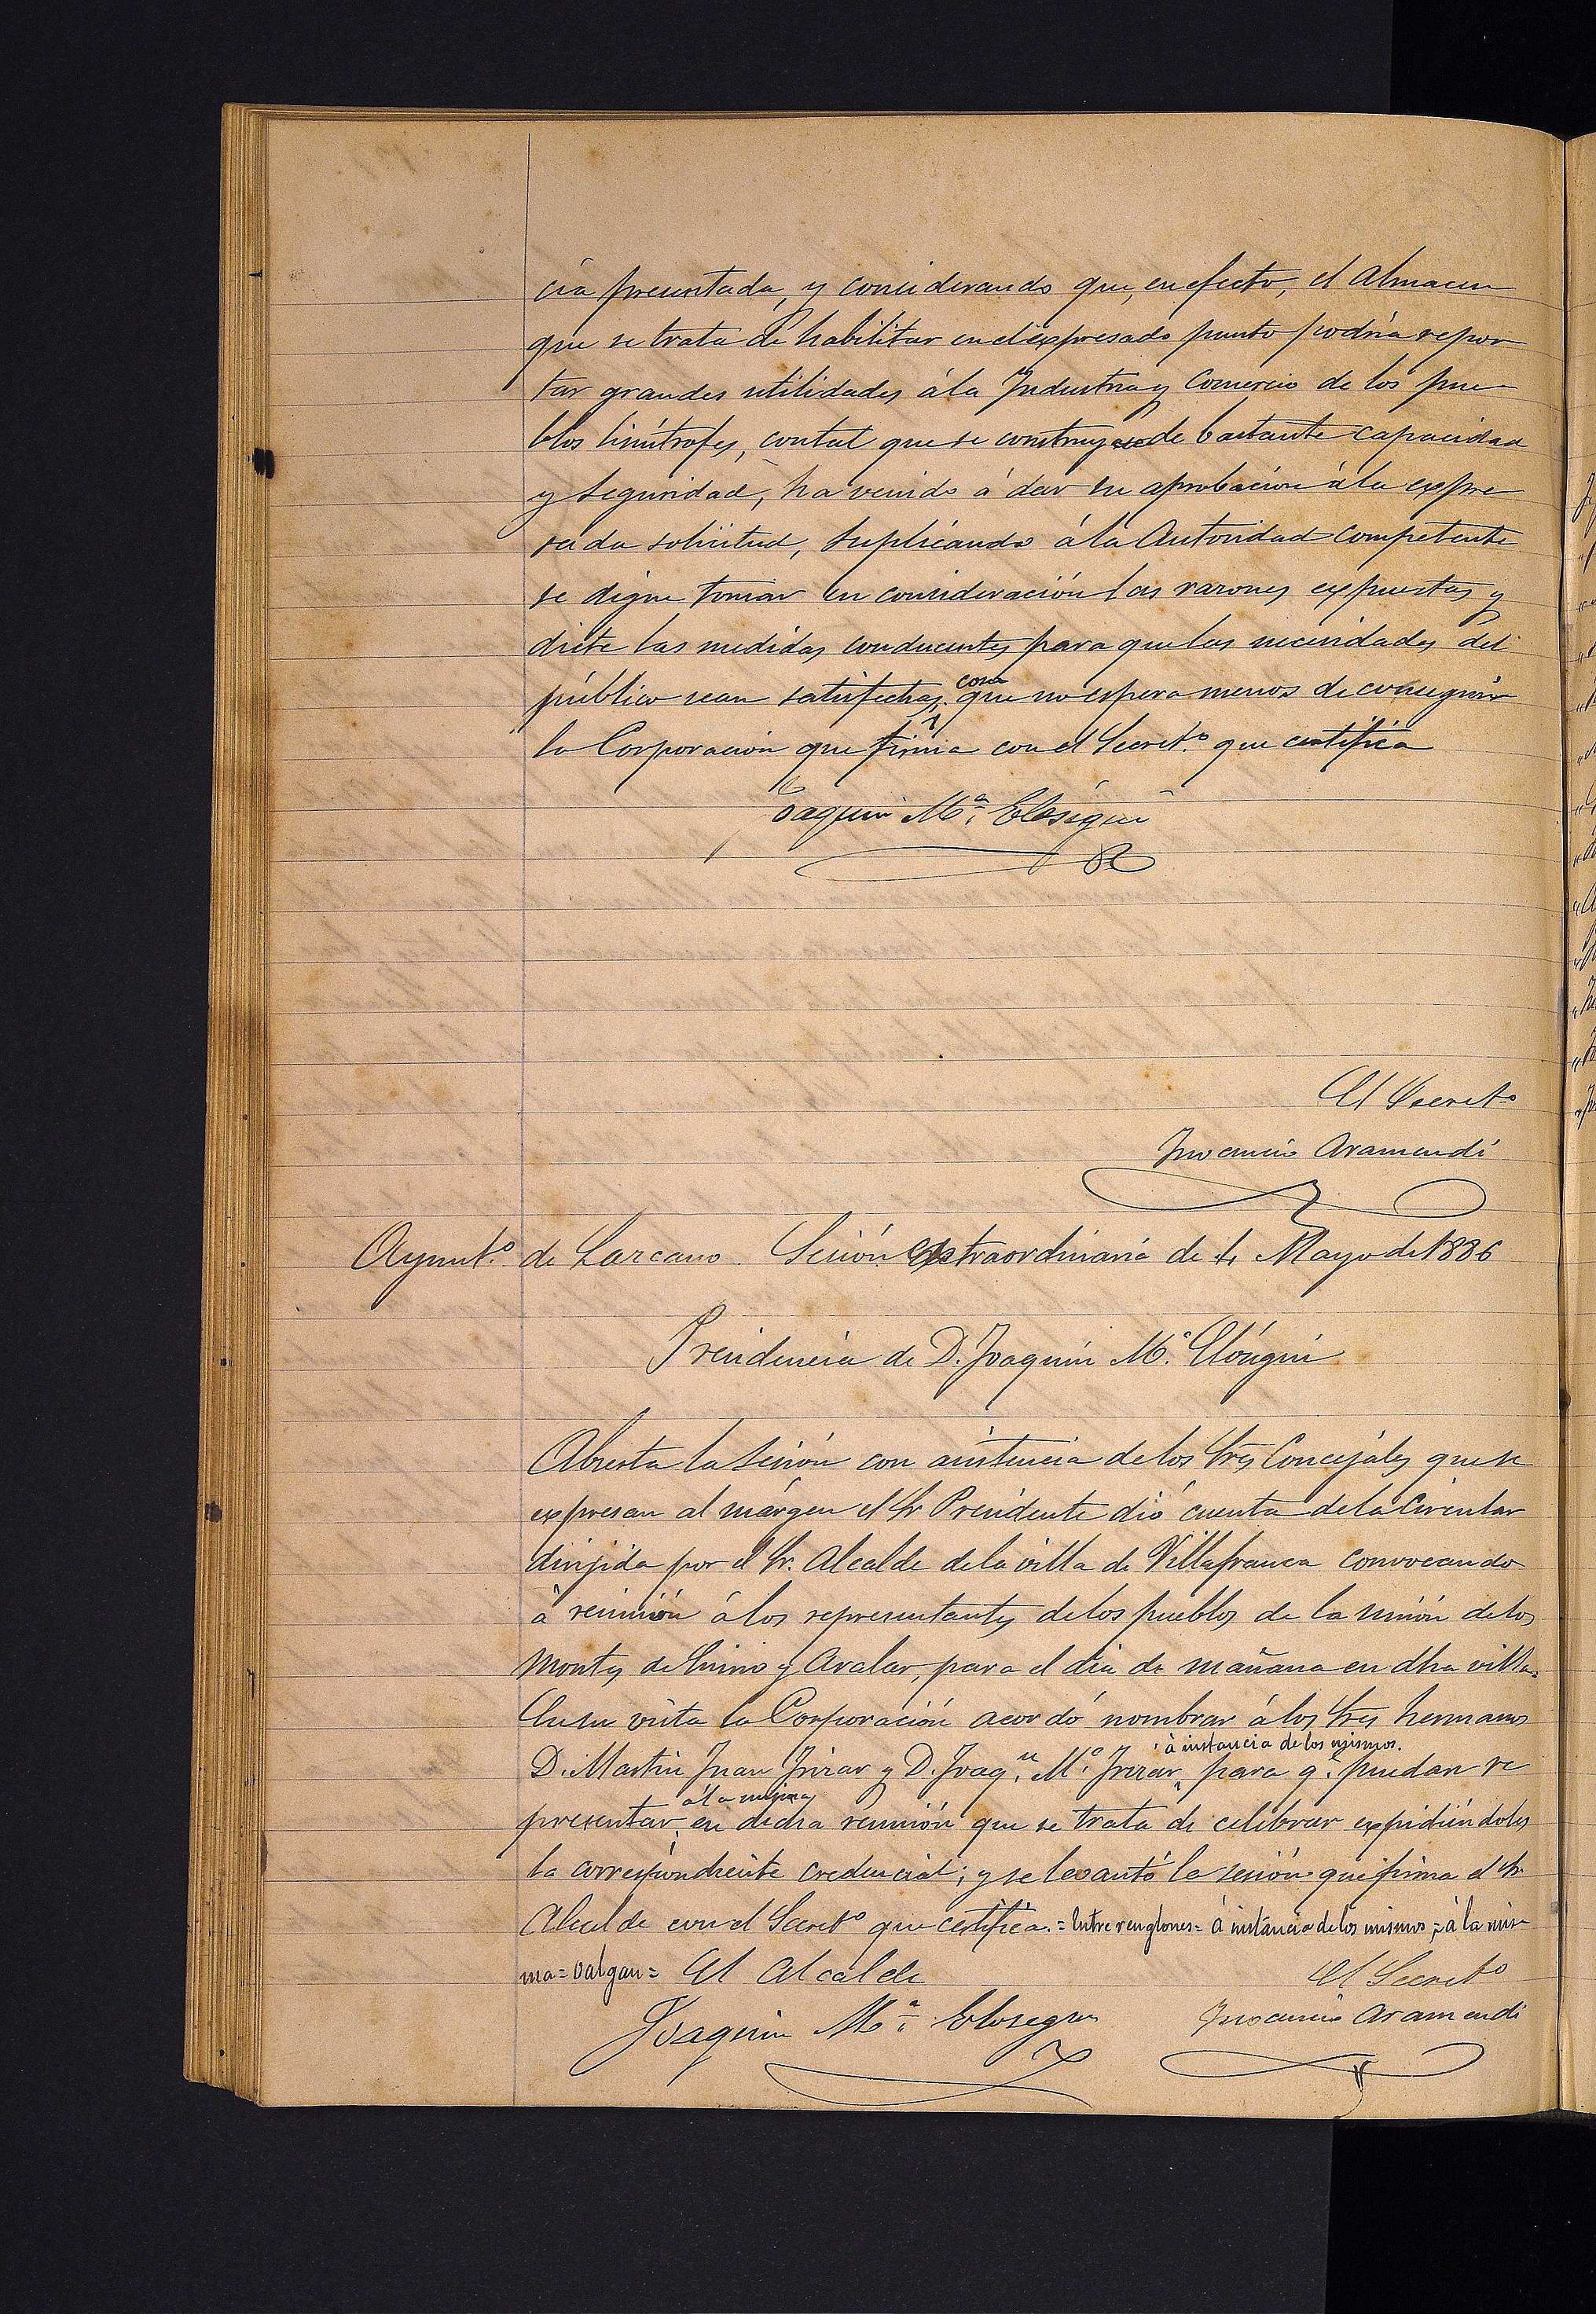 cia presentada, y considerando que, en efecto, el Almacen
que se trata de habilitar en el expresado punto podria repor
tar grandes utilidades á la Industria y Comercio de los pue
blos limítrofes, con tal que se construya de bastante capacidad
y seguridad, ha venido á dar su aprobación á la expre
sada solicitud, suplicando á la Autoridad competente
se digne tomar en consideración las razones expuestas y
dicte las medidas conducentes para que las necesidades del
público sean satisfechas, cosa que no espera menos de conseguir
la Corporación que firma con el Secret.º que certifica
Joaquin M.ª Elosegui
El Secret.º
Inocencio Aramendi
Aynut.º de Lazcano. Sesión extraordinaria de 4 Mayo de 1886
Presidencia de D. Joaquin M.ª Elósegui
Abierta la sesión con asistencia de los Sres Concejales que se
expresan al márgen el Sr Presidente dió cuenta de la Circular
dirijida por el Sr. Alcalde de la villa de Villafranca convocando
á reunión á los representantes de los pueblos de la unión de los
montes de Enirio y Aralar, para el dia de mañana en dha villa.
En su vista la Corporación acordó nombrar á los Sres hermanos
á instancia de los mismos.
D. Martin Juan Irizar y D. Joaq.n M.ª Irizar, para q.e puedan re
á la misma
presentar en dicha reunión que se trata de celebrar expidiéndoles
la correspondiente credencial; y se levantó la sesión que firma el Sr.
Alcalde con el Secret.º que certifica.= Entre renglones= á instancia de los mismos,= á la mis-
ma= valgan= El Alcalde
El Secret.º
Joaquin M.ª Elosegui
Inocencio Aramendi